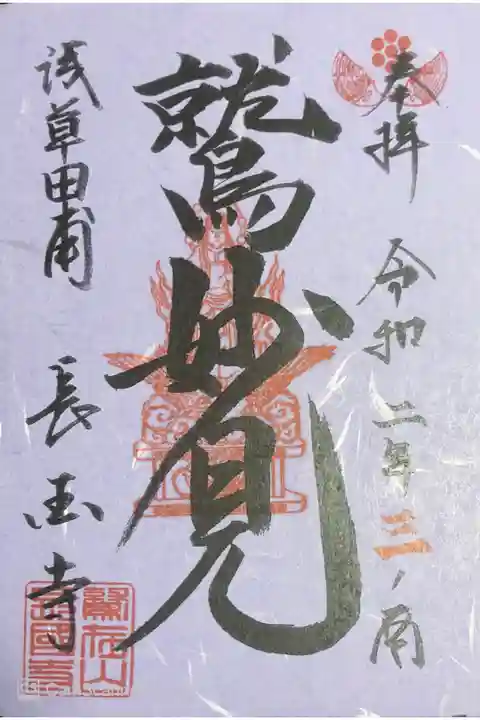 奉拝
令和二年三ノ酉
鷲妙見
浅草田甫
長国寺
鷲在山
長國寺